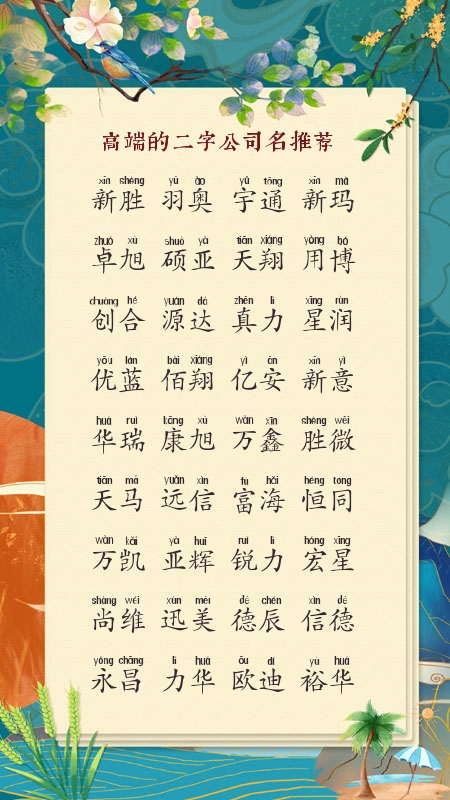 高端的二字公司名推荐
xīn shèng yǔ ào yǔ tōng xīn mǎ
新胜 羽奥 宇通 新玛
zhuó xù shuò yà tiān xiáng yòng bó
卓旭 硕亚 天翔 用博
chuàng hé yuán dá zhēn lì xīng rùn
创合 源达 真力 星润
yōu lán bǎi xiáng yì ān xīn yì
优蓝 佰翔 亿安 新意
huá ruì kāng xù wàn xīn shèng wēi
华瑞 康旭 万鑫 胜微
tiān mǎ yuǎn xìn fù hǎi héng tóng
天马 远信 富海 恒同
wàn kǎi yà huī ruì lì hóng xīng
万凯 亚辉 锐力 宏星
shàng wéi xùn měi dé chén xìn dé
尚维 迅美 德辰 信德
yǒng chāng lì huá ōu dí yù huá
永昌 力华 欧迪 裕华